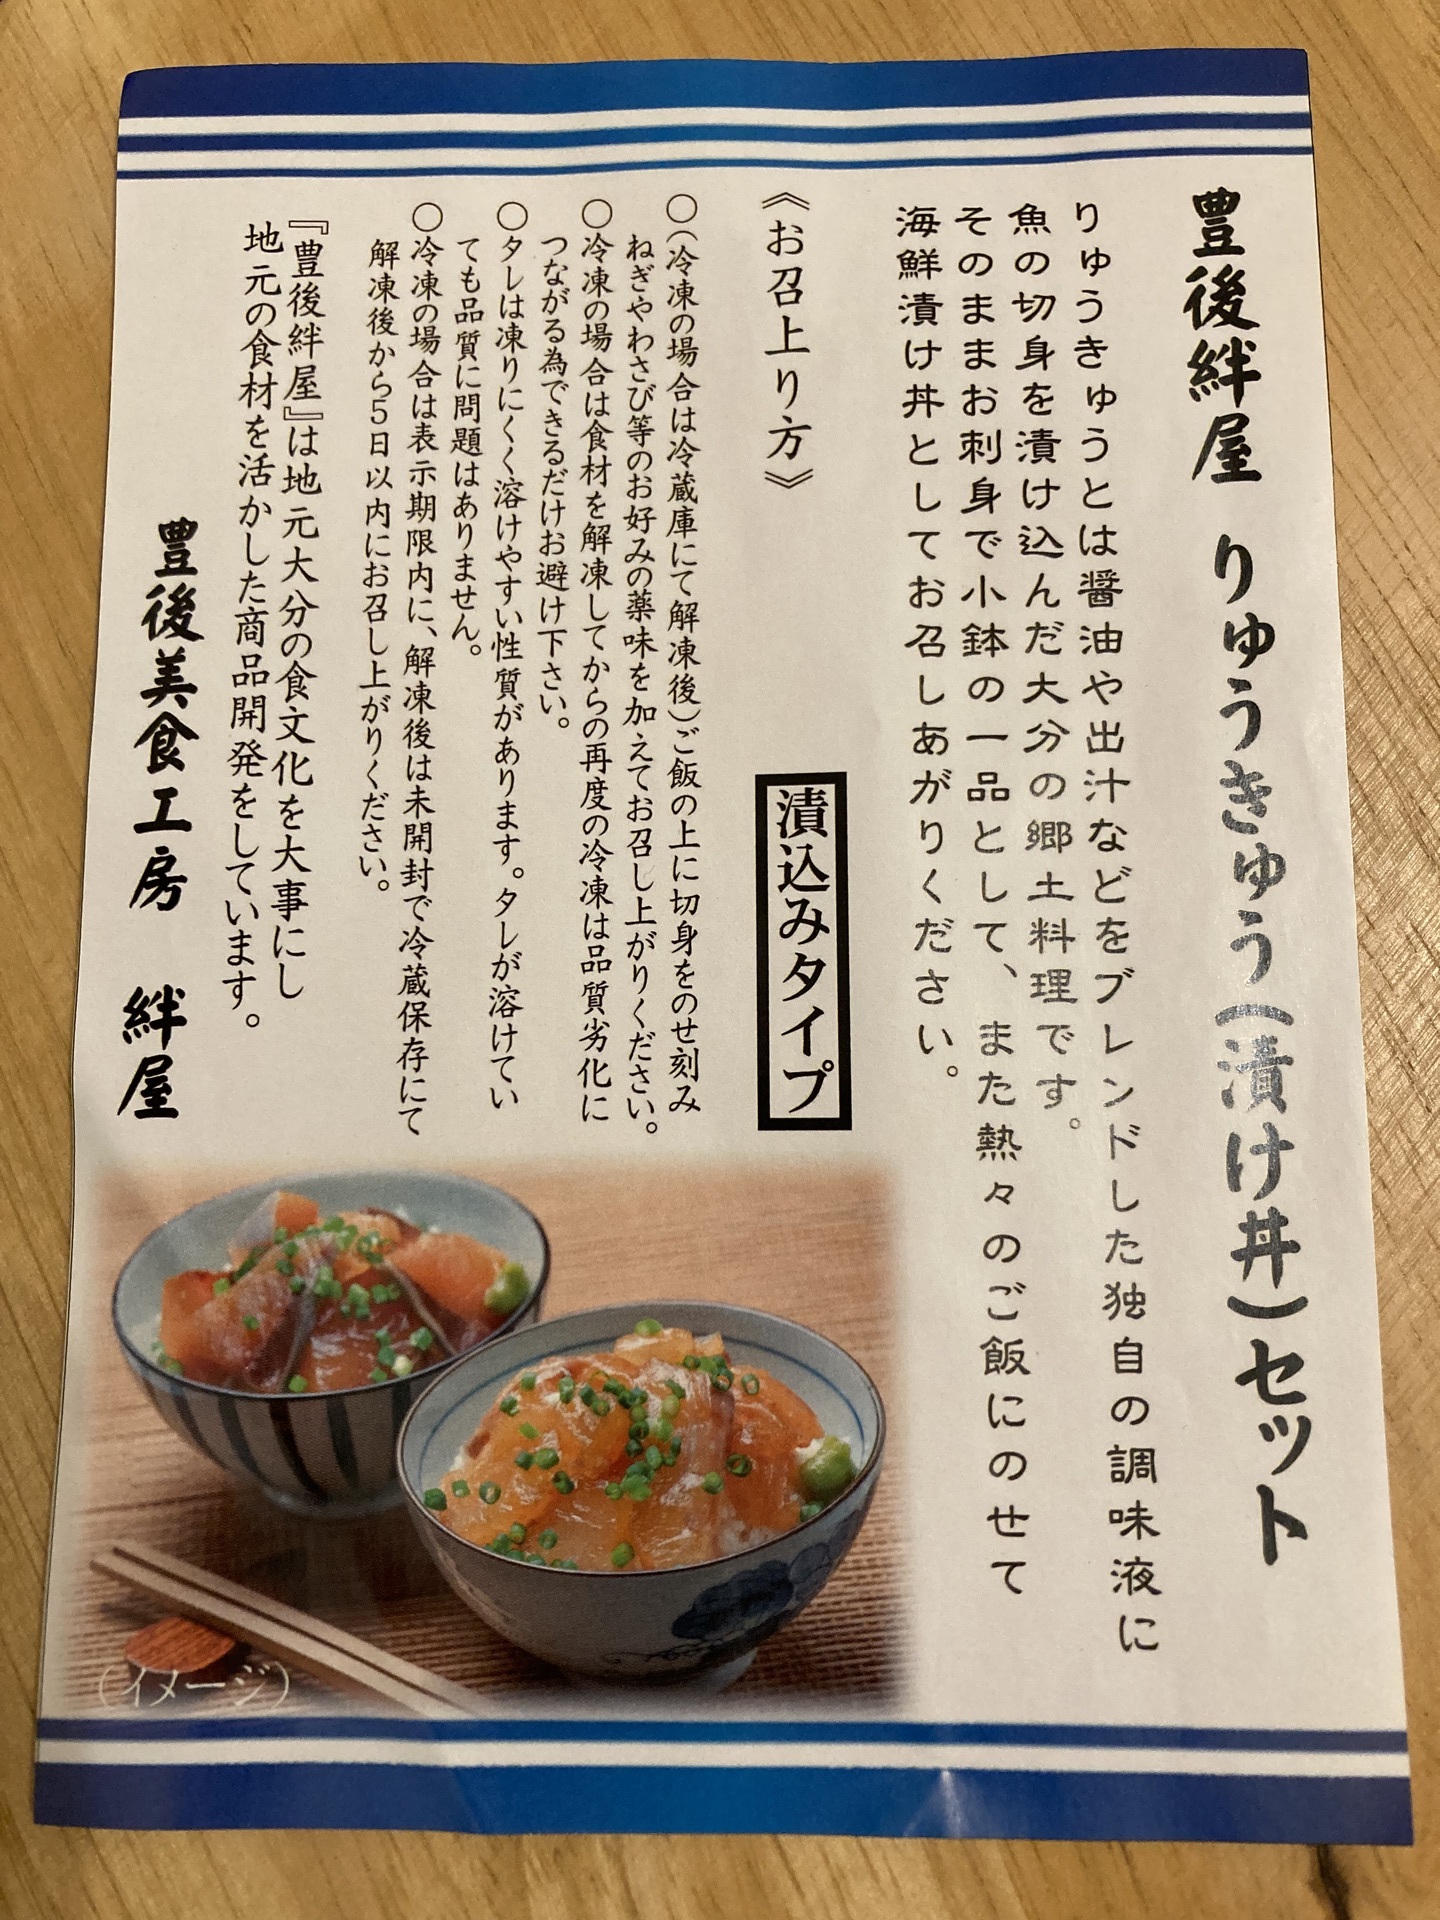 豊後絆屋 りゅうきゅう(漬け丼)セット
りゅうきゅうとは醤油や出汁などをブレンドした独自の調味液に
魚の切身を漬け込んだ大分の郷土料理です。
そのままお刺身で小鉢の一品として、また熱々のご飯にのせて
海鮮漬け丼としてお召しあがりください。
《お召上り方》
漬込みタイプ
○(冷凍の場合は冷蔵庫にて解凍後)ご飯の上に切身をのせ刻み
ねぎやわさび等のお好みの薬味を加えてお召し上がりください。
○冷凍の場合は食材を解凍してからの再度の冷凍は品質劣化に
つながる為できるだけお避け下さい。
○タレは凍りにくく溶けやすい性質があります。タレが溶けてい
ても品質に問題はありません。
○冷凍の場合は表示期限内に、解凍後は未開封で冷蔵保存にて
解凍後から5日以内にお召し上がりください。
『豊後絆屋』は地元大分の食文化を大事にし
地元の食材を活かした商品開発をしています。
豊後美食工房 絆屋
(イメージ)